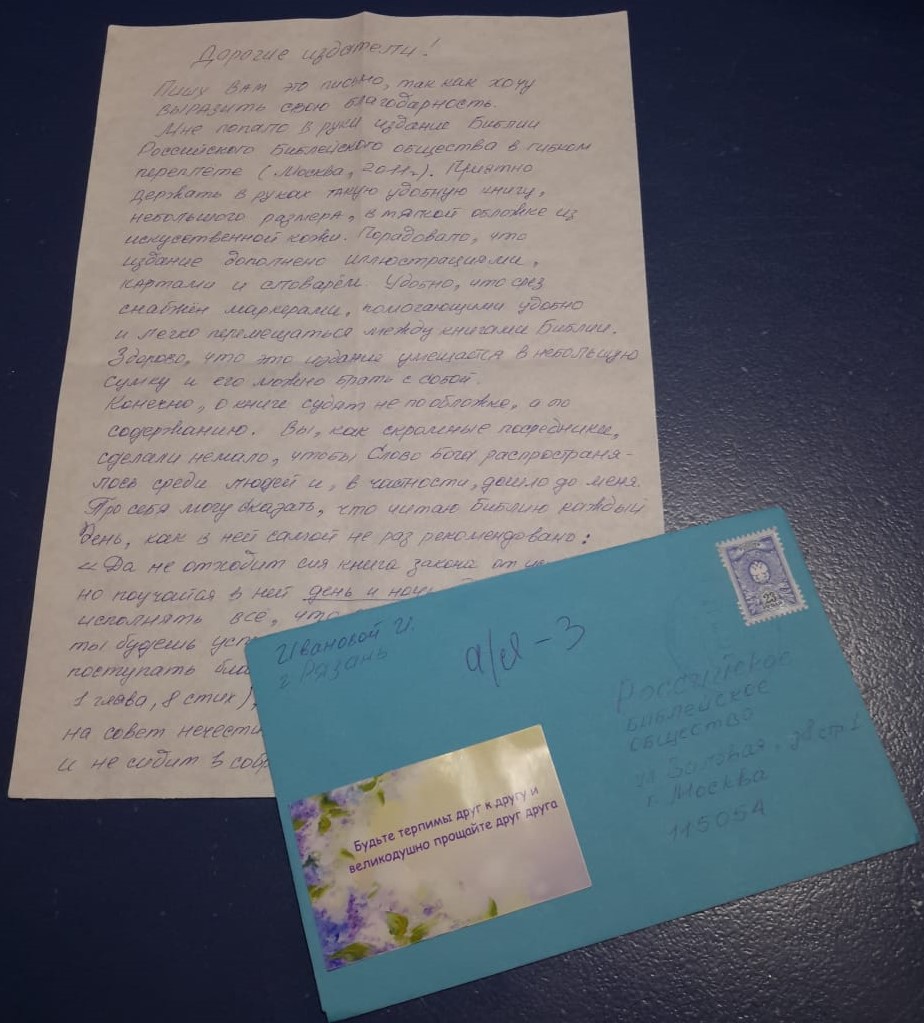 Дорогие издатели!
Пишу Вам это письмо, так как хочу
выразить свою благодарность.
Мне попало в руки издание Библии
Российского Библейского общества в гибком
переплете (Москва, 2011г.). Приятно
держать в руках такую удобную книгу,
небольшого размера, в мягкой обложке из
искусственной кожи. Порадовало, что
издание дополнено иллюстрациями,
картами и словарём. Удобно, что срез
снабжён маркерами, помогающими удобно
и легко перемещаться между книгами Библии.
Здорово, что это издание умещается в небольшую
сумку и его можно брать с собой.
Конечно, о книге судят не по обложке, а по
содержанию. Вы, как скромные посредники,
сделали немало, чтобы Слово Бога распространя-
лось среди людей и, в частности, дошло до меня.
Про себя могу сказать, что читаю Библию каждый
день, как в ней самой не раз рекомендовано:
«Да не отходит сия книга закона от
но поучайся в ней день и ночь
исполнять всё, что
ты будешь
поступать
1 глава, 8 стих),
на совет
и не сидит в
Ивановой И.
г Рязань
а/я - 3
Российское
Библейское
общество
г. Москва
115054
23
Будьте терпимы друг к другу и
великодушно прощайте друг друга